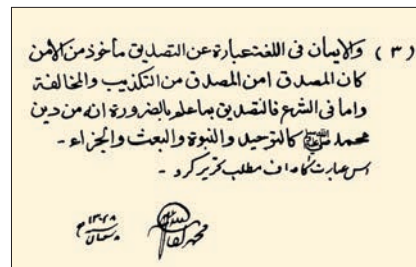 (٣) والایمان فی اللغت عبارة عن التصدیق مأخوذ من الامن
کان المصدق امن المصدق من التکذیب والمخالفة
واما فی الشرع فالتصدیق بما علم بالضرورة انه من دین
محمد ﷺ کالتوحید والنبوة والبعث والجزاء -
اس عبارت کا صاف مطلب تحریر کرو -